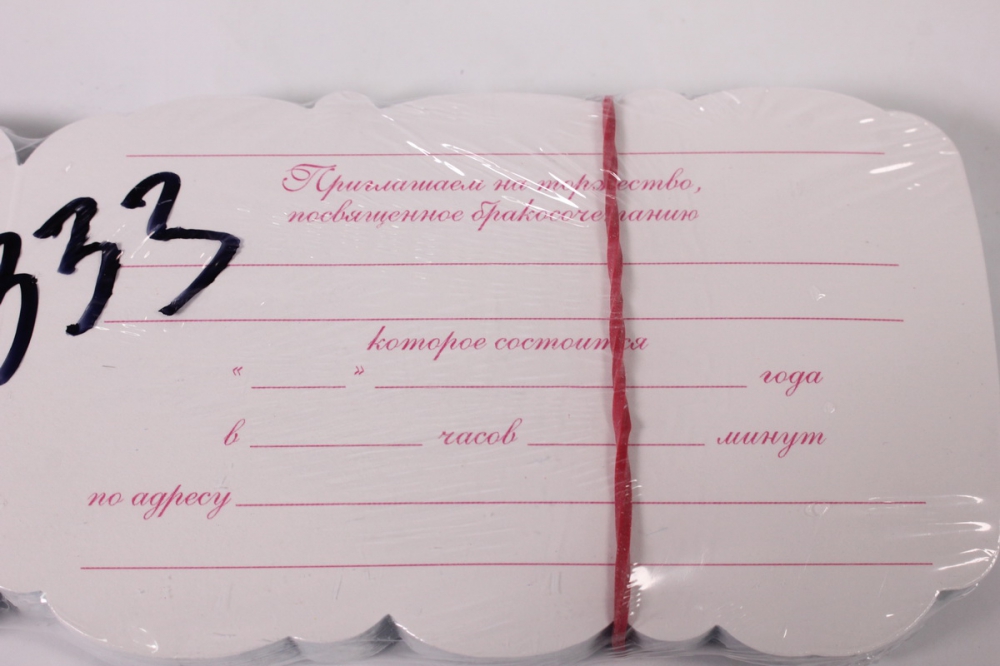 333
Приглашаем на торжество,
посвященное бракосочетанию
которое состоится
« ____ » ____ года
в ____ часов ____ минут
по адресу